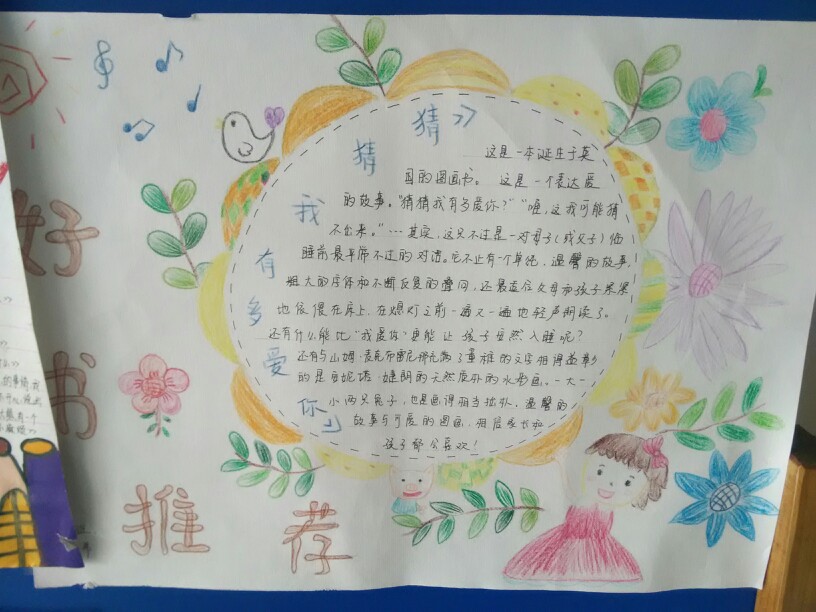 好书推荐
猜猜我有多爱你》
这是一本诞生于英
国的图画书。这是一个表达爱
的故事。“猜猜我有多爱你？”“喔，这我可能猜
不出来。”…其实，这只不过是一对母子(或父子)临
睡前最平常不过的对话。它不止有一个单纯、温馨的故事,
粗大的字体和不断反复的叠问，还最适合父母和孩子呆呆
地依偎在床上，在烛灯之前一遍又一遍地轻声朗读了。
还有什么能比“我爱你”更能让孩子自然入睡呢？
还有与山姆·麦克布雷尼那充满了童稚的文字相得益彰
的是安妮塔·婕朗的天然质朴的水彩画。一大一
小两只兔子，也是画得相当拙朴、温馨的
故事与可爱的图画，相信家长和
孩子都会喜欢！